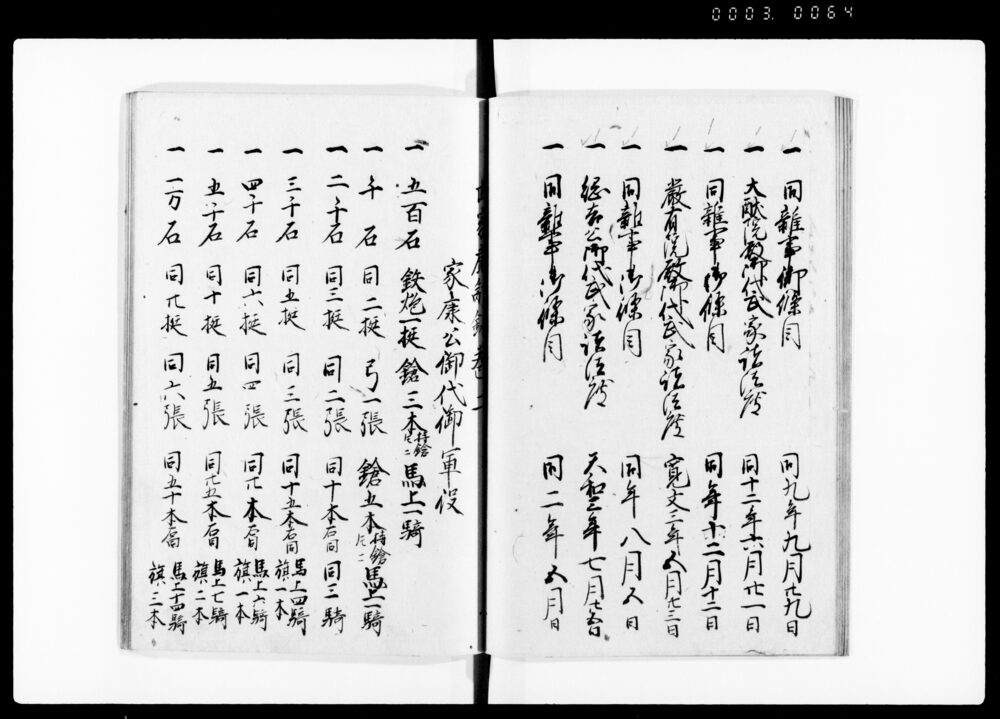 0003. 0064
一 同雑事御條目 同九年九月廿九日
一 大猷院殿御代武家諸法度 同十二年六月廿一日
一 同雑事御條目 同年十二月十二日
一 厳有院殿御代武家諸法度 寛文三年五月廿三日
一 同雑事御條目 同年八月五日
一 綱吉公御代武家諸法度 天和三年七月廿五日
一 同雑事御條目 同二年五月日
家康公御代御軍役
一 五百石 鉄炮一挺 鎗三本持鎗共ニ 馬上一騎
一 千石 同二挺 弓一張 鎗五本持鎗共ニ 馬上一騎
一 二千石 同三挺 同二張 同十本右同 同三騎
一 三千石 同五挺 同三張 同十五本右同 馬上四騎 旗一本
一 四千石 同六挺 同四張 同廿本右同 馬上六騎 旗一本
一 五千石 同十挺 同五張 同廿五本右同 馬上七騎 旗二本
一 一万石 同廿挺 同六張 同五十本右同 馬上十四騎 旗三本